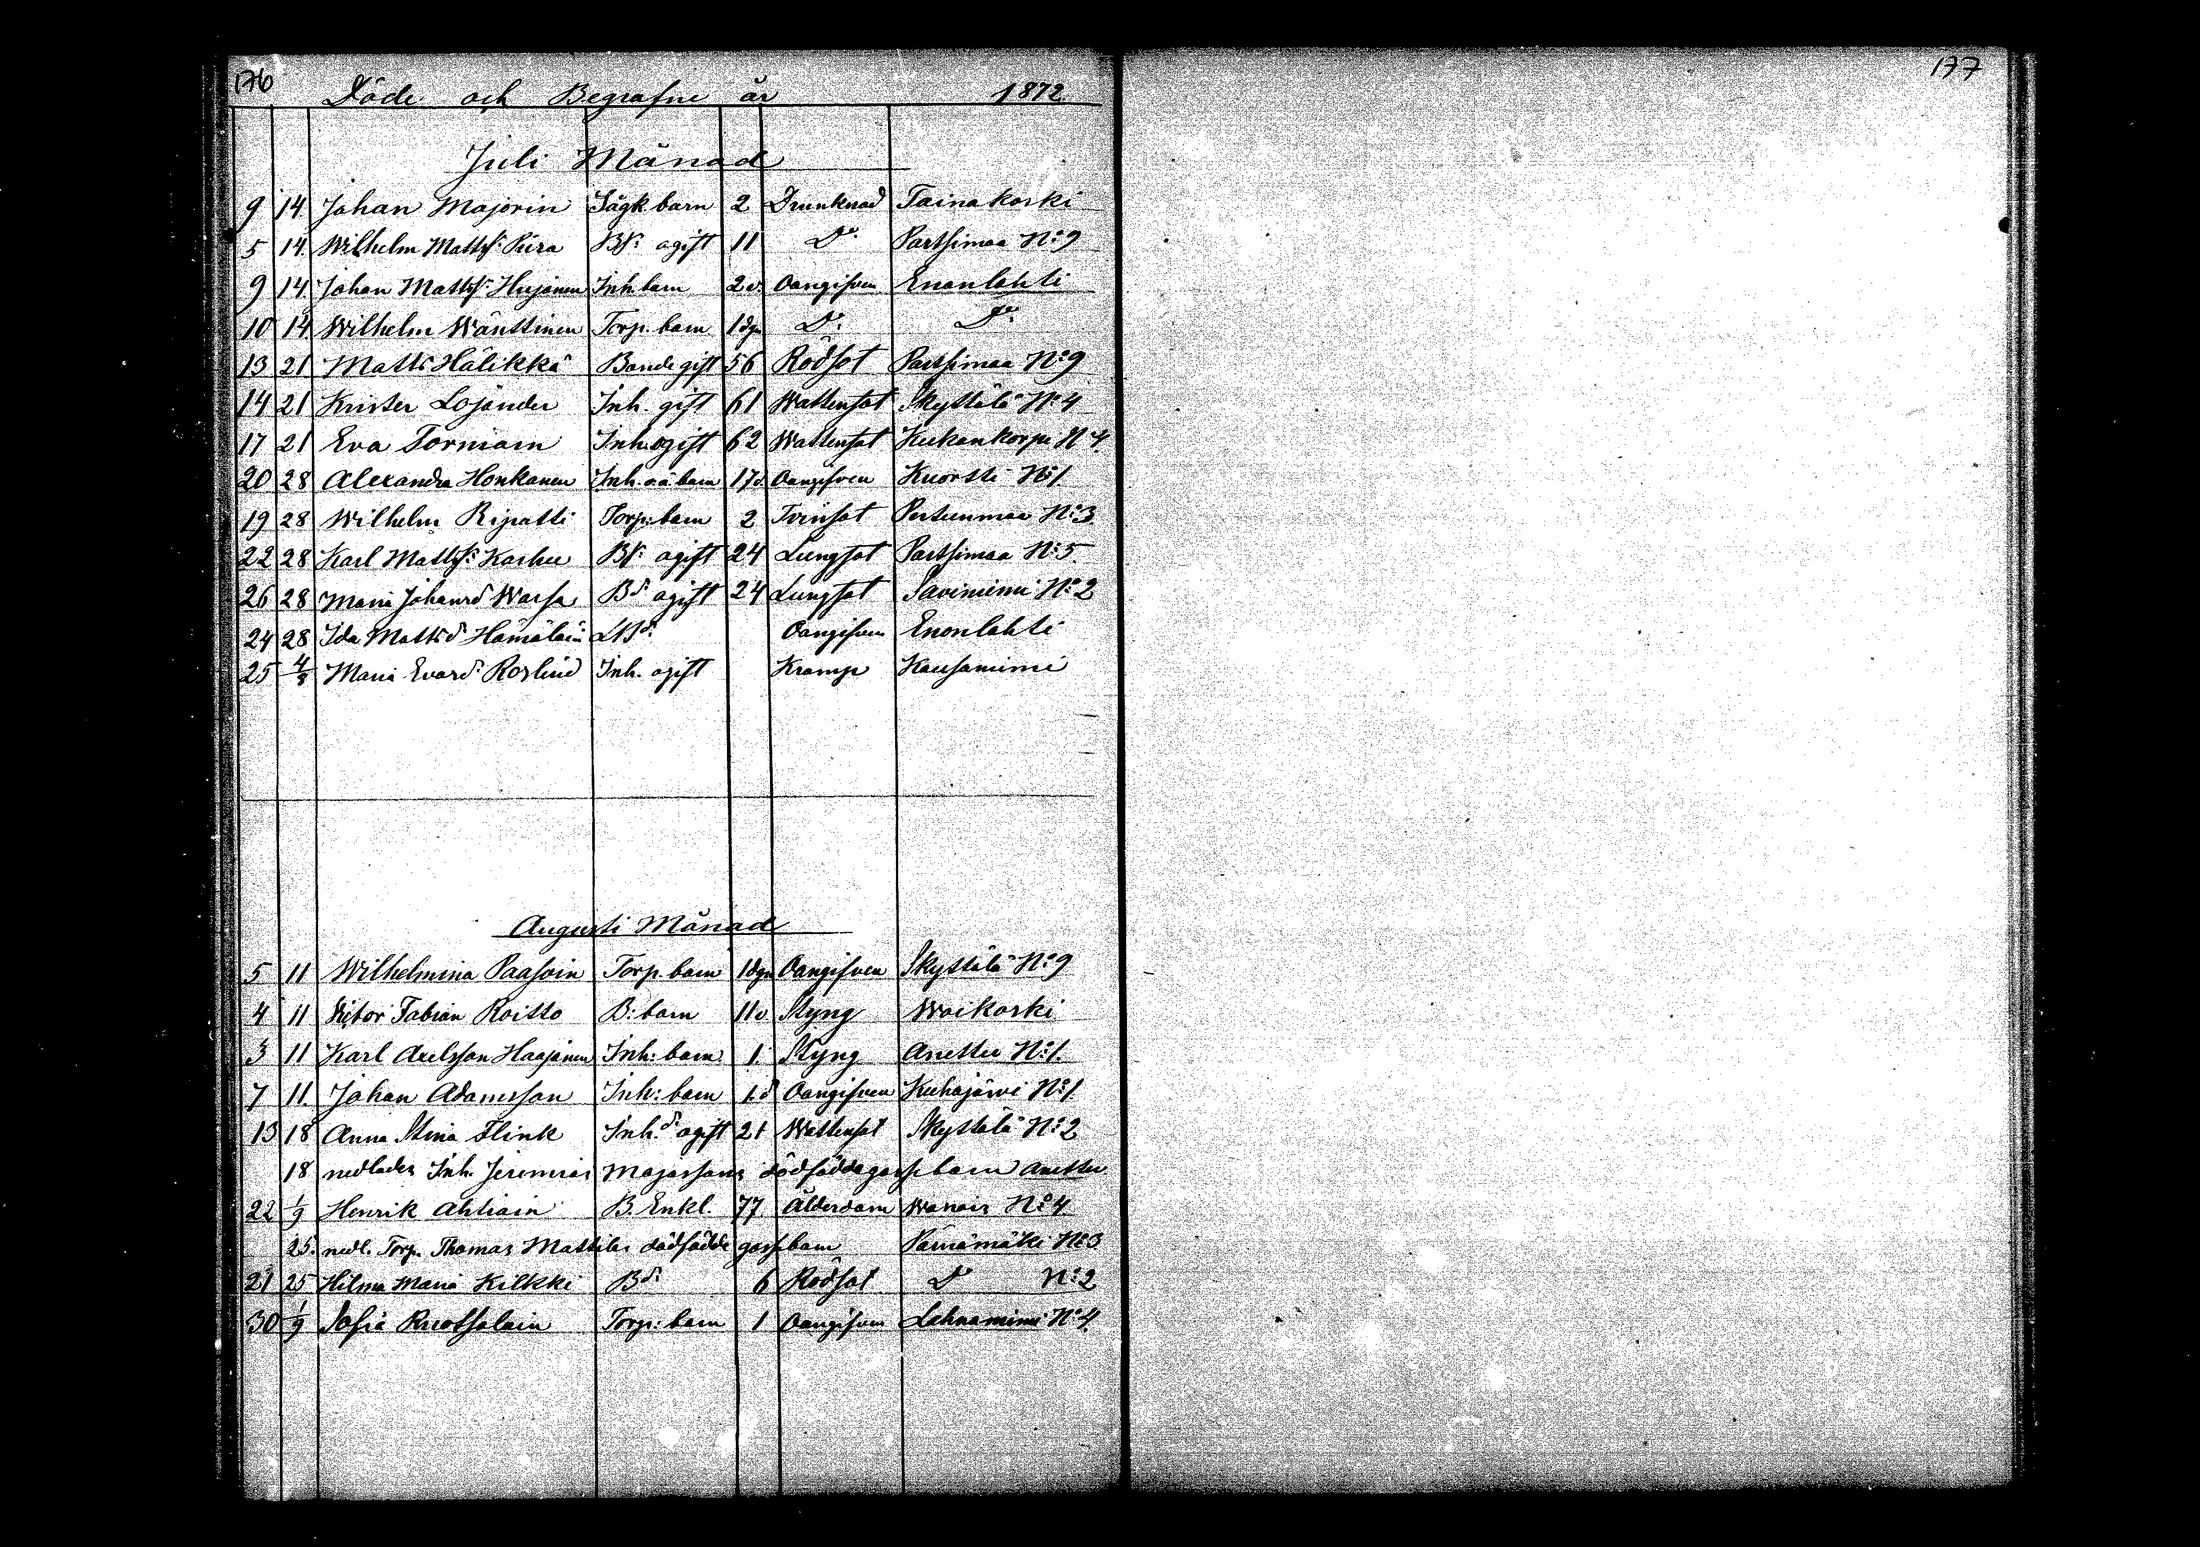 176
Döde och Begrafne år 1872.
Juli Månad
9 14 Johan Majorin Sågk. barn 2 Drunknad Tainakoski
5 14. Wilhelm Mattss: Piira Bs: ogift 11 Do. Partsimaa No: 9
9 14. Johan Mattss: Hujanen Inh. barn 2 v. Oangifven Enonlahti
10 14. Wilhelm Wänttinen Torp. barn 1 dgn Do: Do:
13 21 Matts Hälikkä Bonde gift 56 Rödsot Partsimaa No 9
14 21 Krister Lojander Inh. gift 61 Wattensot Skyttälä No: 4
17 21 Eva Torniain Inh. ogift 62 Wattensot Kukonkorpi No 4.
20 28 Alexandra Honkanen Inh. oä barn 17 d. Oangifven Kuortti No: 1.
19 28 Wilhelm Ripatti Torp: barn 2 Tvinsot Pertunmaa No: 3
22 28 Karl Mattss: Karhu Bs: ogift 24 Lungsot Partsimaa No: 5.
26 28 Maria Johansd Warsa Bd: ogift 24 Lungsot Saviniemi No: 2
24 28 Ida Mattsd Hämäläin Oangifven Enonlahti
25 4/8 Maria Evasd: Roslind Inh. ogift Kramp Kausaniemi
Augusti Månad
5 11 Wilhelmina Paasoin Torp. barn 1 dgn Oangifven Skyttälä No: 9
4 11 Viktor Fabian Roitto B: barn 11 v Styng Woikoski
3 11 Karl Axelsson Haajanen Inh: barn 1. Styng Anettu No: 1.
7 11. Johan Adamsson Inh: barn 1. d Oangifven Kuhajärvi No: 1.
13 18 Anna Stina Flink Inh.d: ogift 21 Wattensot Skyttälä No: 2
18 nedlades Inh. Jeremias Majassons dödfödda gossebarn Anettu
22 1/9 Henrik Ahtiain B. Enkl. 77. Ålderdom Wanois No 4
25. nedl. Torp. Thomas Mattilas dödfödde gossebarn No: 3
21 25 Hilma Maria Kilkki Bd: 6 Rödsot Do No: 2
30 1/9 Sofia Ruotsalain Torp: barn 1 Oangifven Lahnaniemi No 4.
177